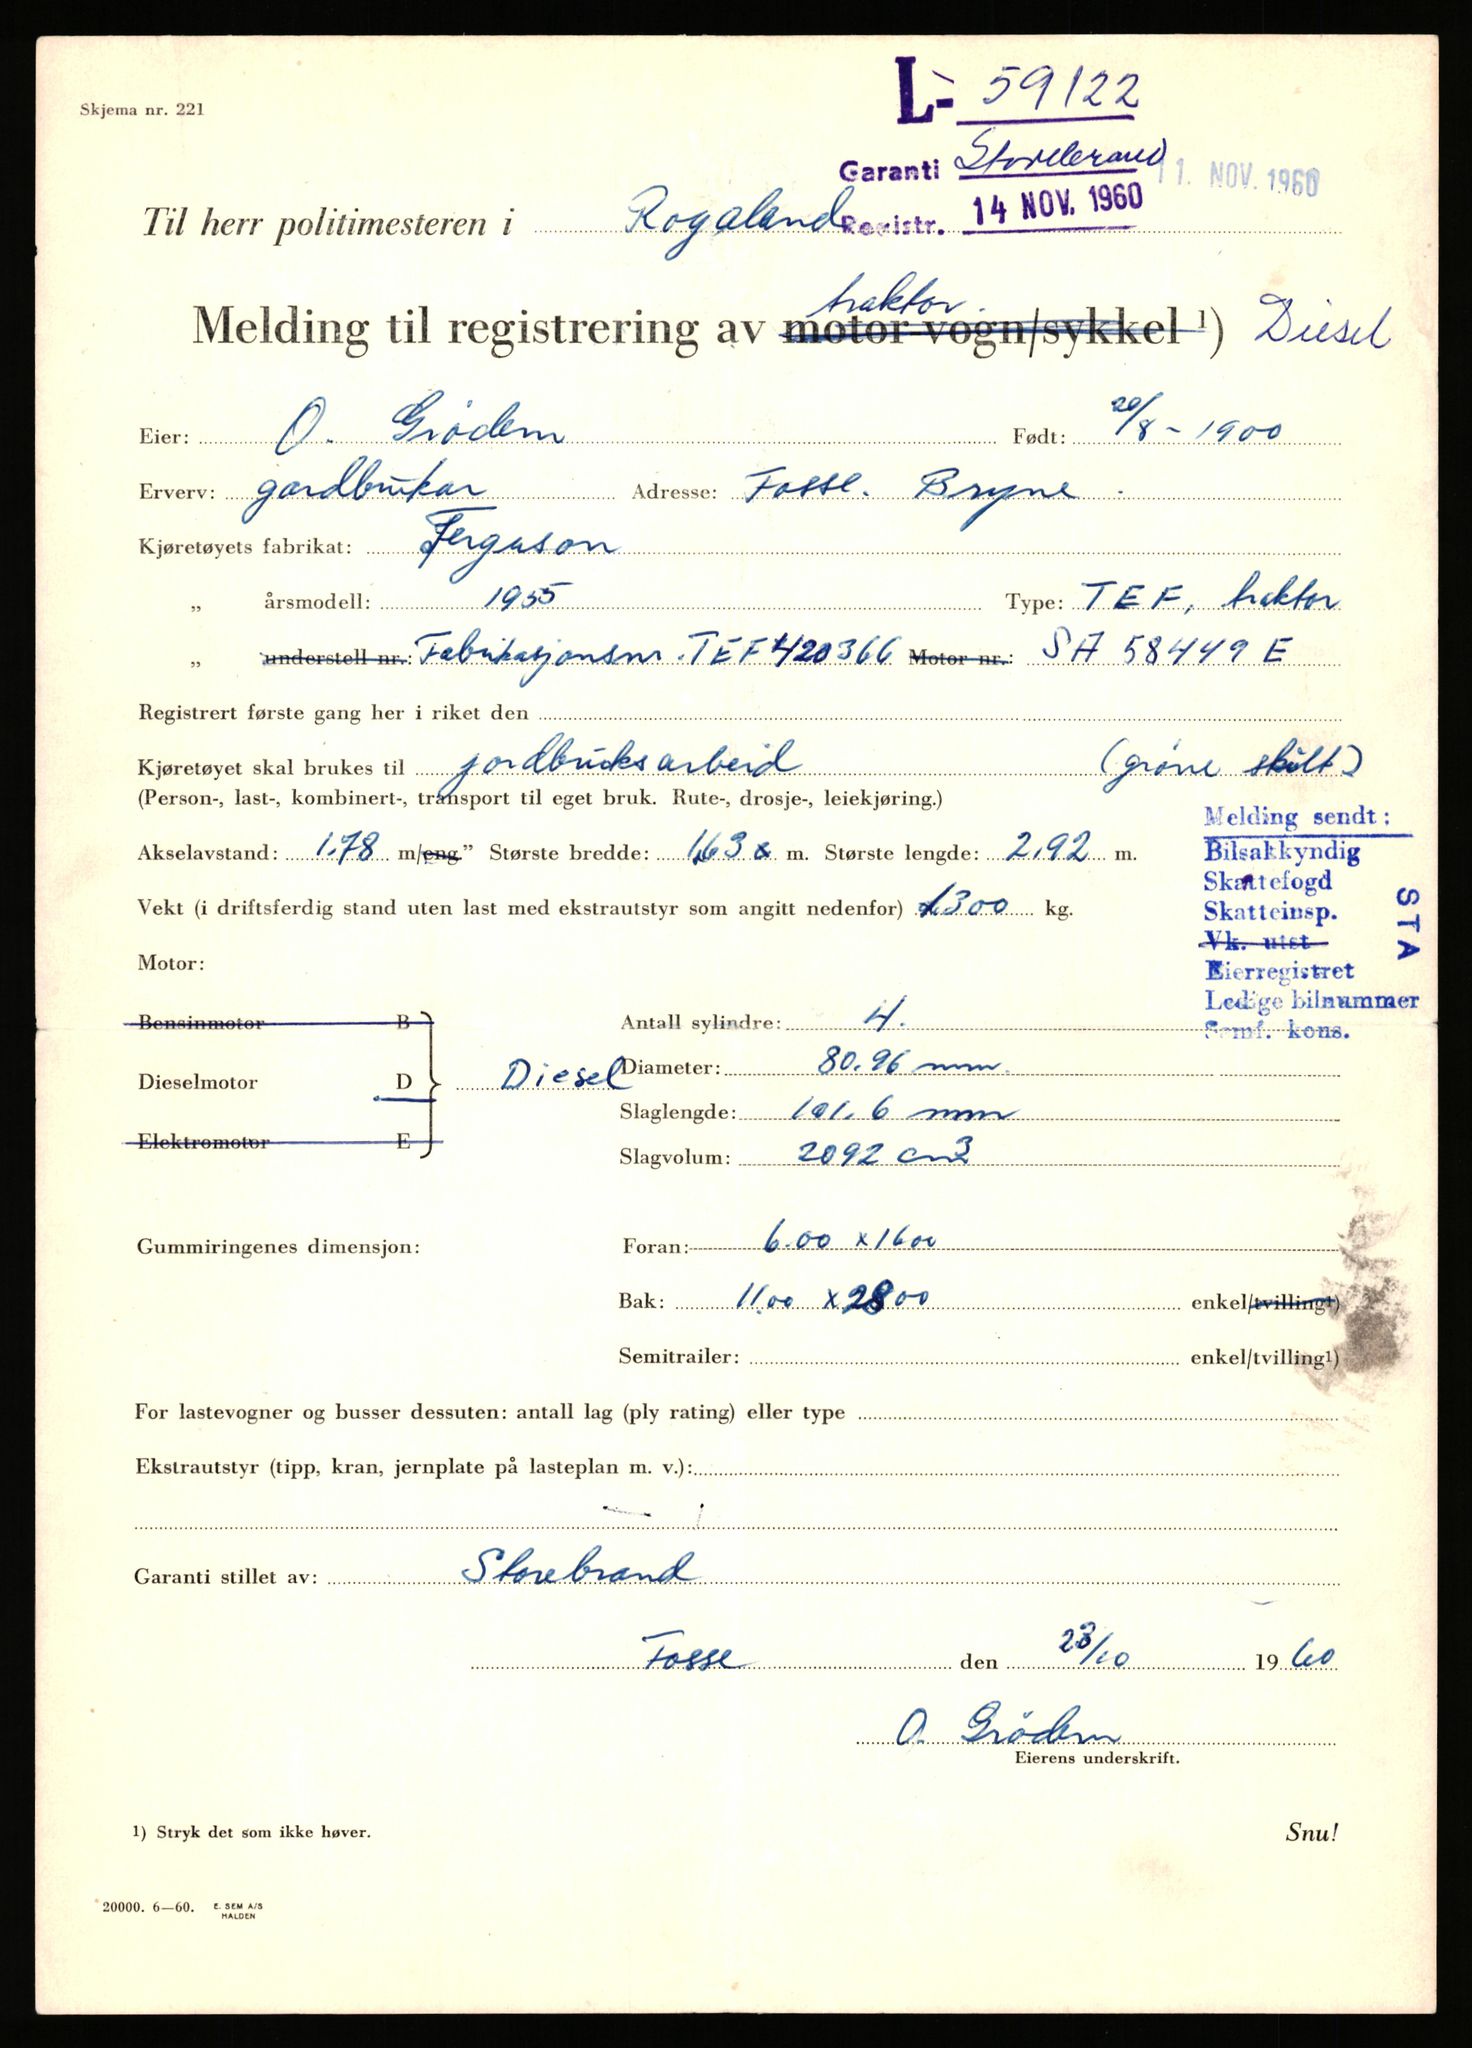 Skjema nr. 221
L- 59122
Garanti Storebrand 11. NOV. 1960
Registr. 14 NOV. 1960
Til herr politimesteren i Rogaland
traktor.
Melding til registrering av motor vogn/sykkel ¹) Diesel
Eier: O. Grödem Født: 20/8 - 1900
Erverv: gardbrukar Adresse: Fosse. Bryne.
Kjøretøyets fabrikat: Ferguson
„ årsmodell: 1955 Type: TEF, traktor
„ understell nr.: Fabrikasjonsnr. TEF 420366 Motor nr.: SA 58449 E
Registrert første gang her i riket den
Kjøretøyet skal brukes til jordbruksarbeid (gröne skilt)
(Person-, last-, kombinert-, transport til eget bruk. Rute-, drosje-, leiekjøring.)
Melding sendt:
Bilsakkyndig
Skattefogd
Skatteinsp.
Vk. utst
Eierregistret
Ledige bilnummer
Samf. kons.
STA
Akselavstand: 1.78 m/eng." Største bredde: 1,63 m. Største lengde: 2.92 m.
Vekt (i driftsferdig stand uten last med ekstrautstyr som angitt nedenfor) 1300 kg.
Motor:
Bensinmotor B
Dieselmotor D Diesel
Elektromotor E
Antall sylindre: 4.
Diameter: 80.96 mm.
Slaglengde: 101.6 mm
Slagvolum: 2092 cm3
Gummiringenes dimensjon: Foran: 6.00 x 1600
Bak: 11.00 x 2800 enkel/tvilling¹)
Semitrailer: enkel/tvilling¹)
For lastevogner og busser dessuten: antall lag (ply rating) eller type
Ekstrautstyr (tipp, kran, jernplate på lasteplan m. v.):
Garanti stillet av: Storebrand
Fosse den 23/10 1960
O. Grödem
Eierens underskrift.
¹) Stryk det som ikke høver. Snu!
20000. 6—60. E. SEM A/S
HALDEN